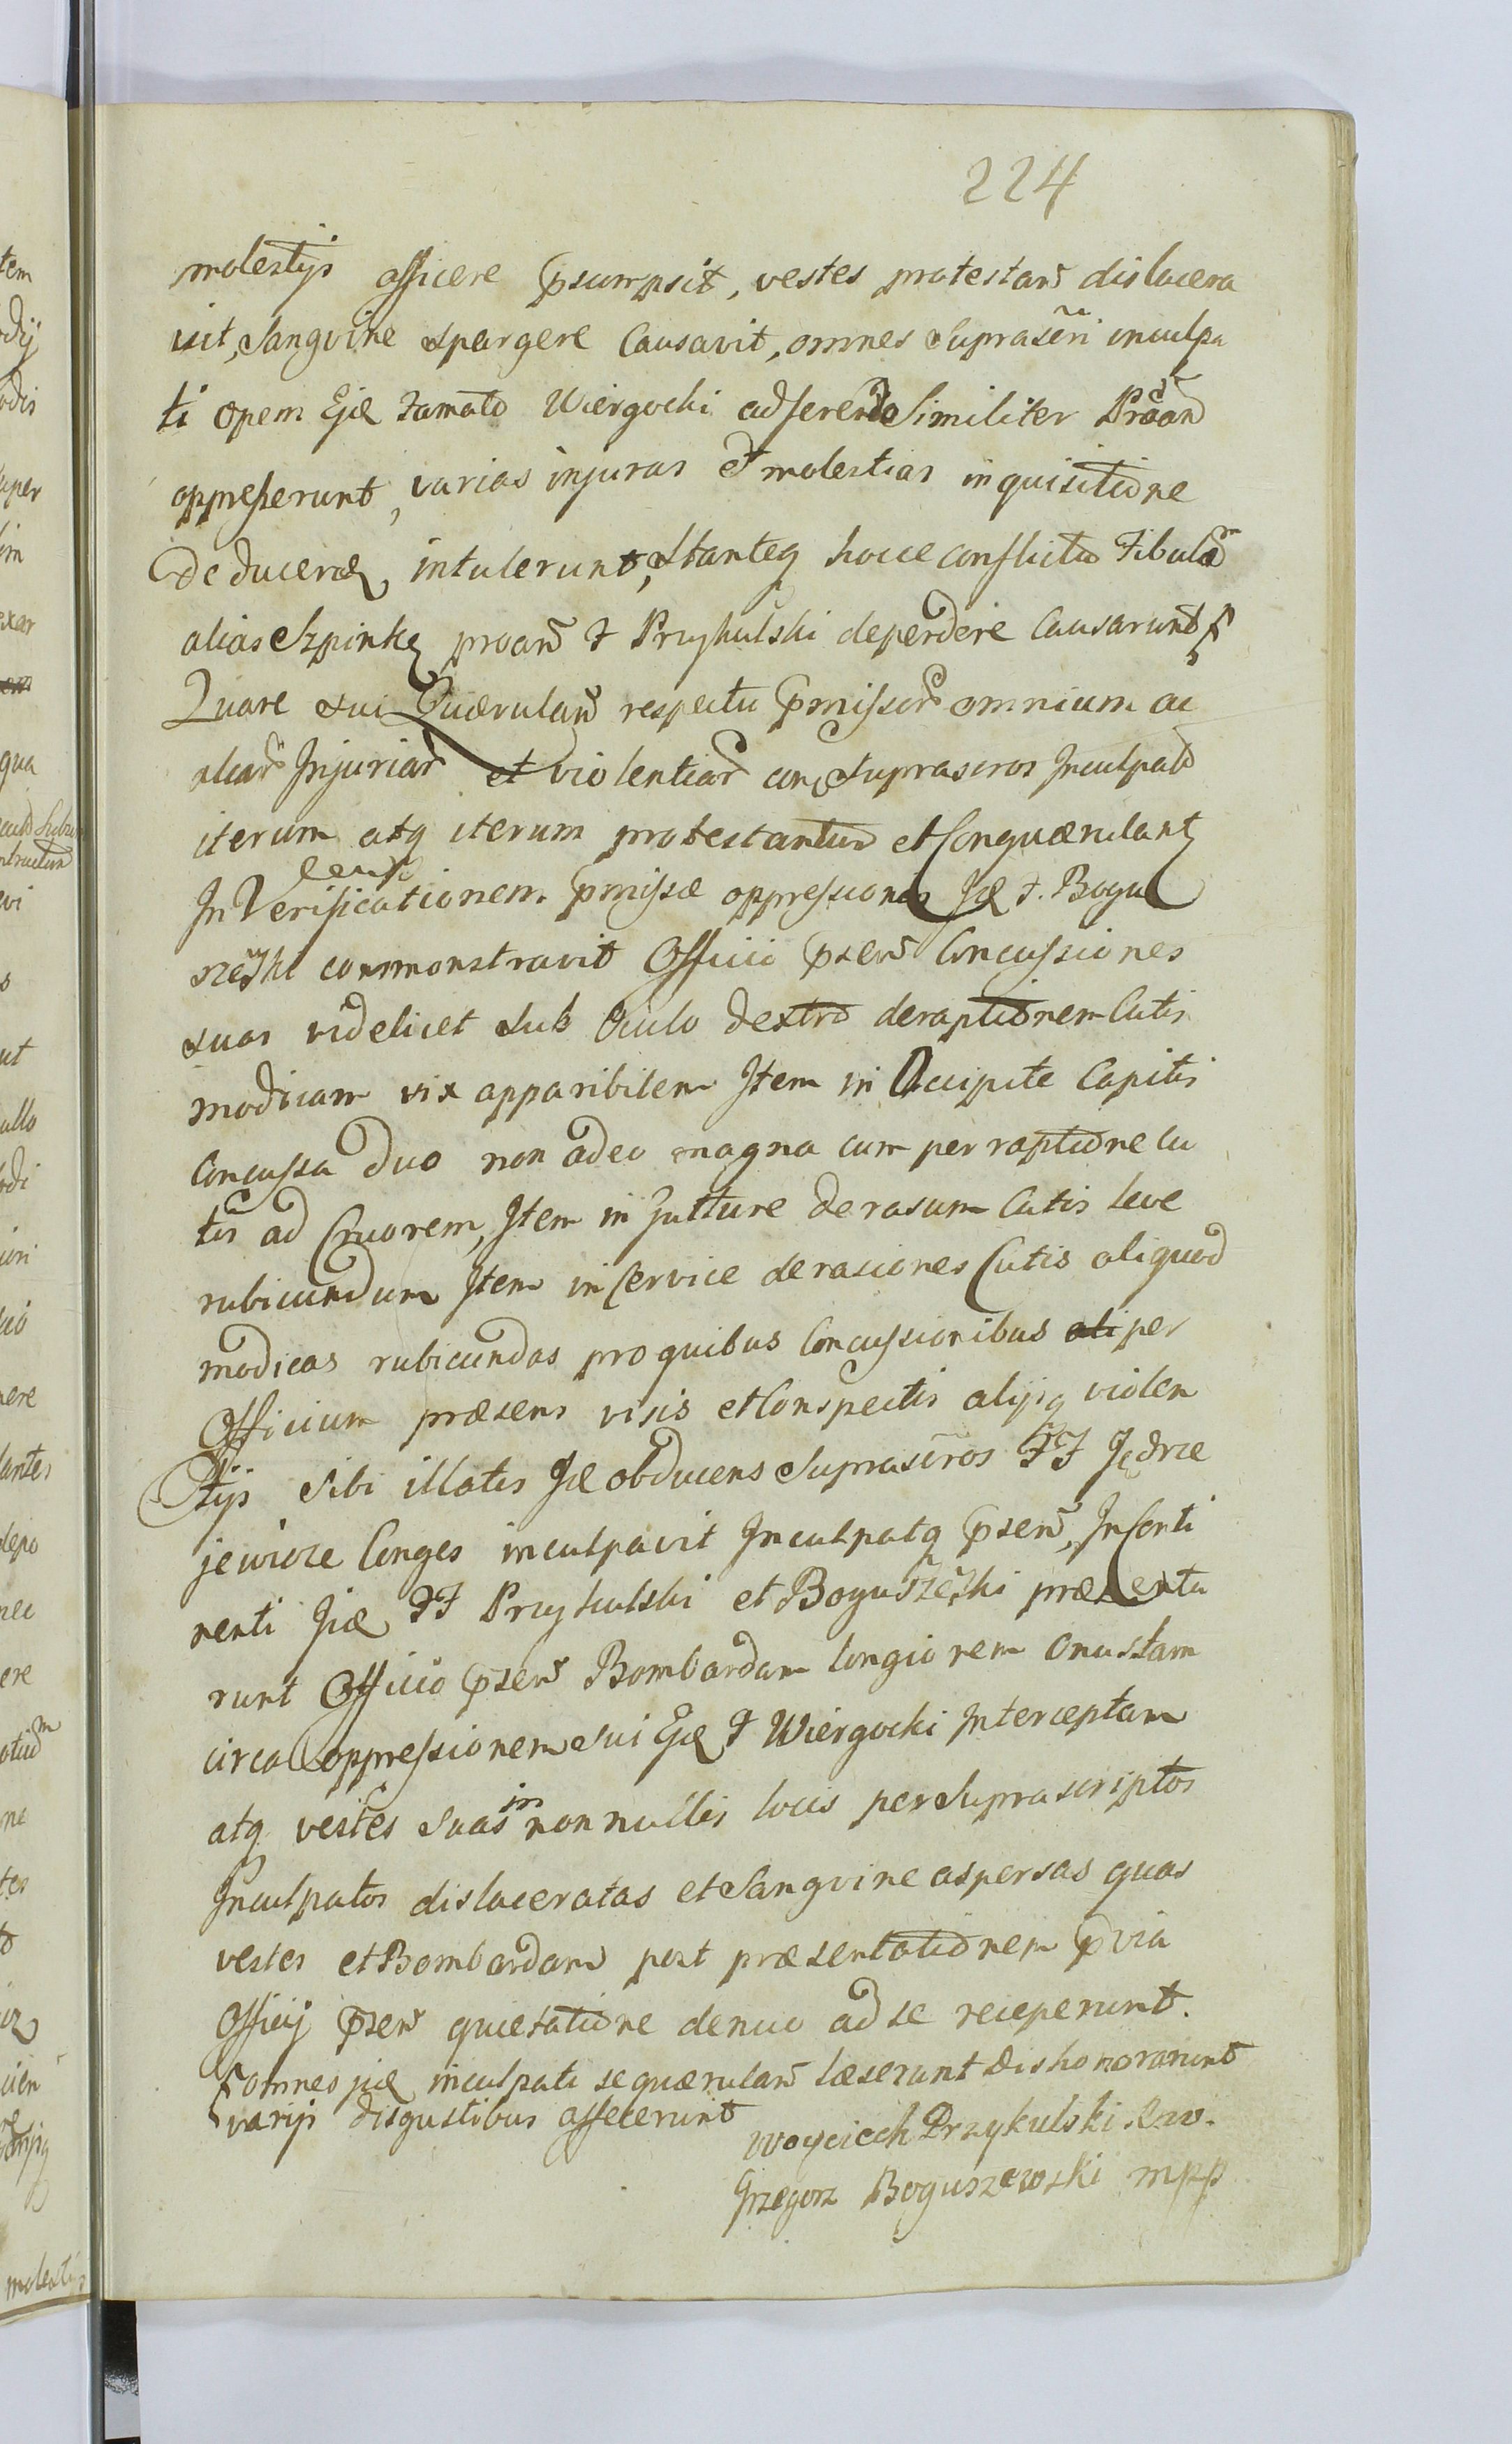 224
molestijs afficere p̄sumpsit, vestes protestan̄ dislacera
vit, Sangvine spargere Causavit, omnes Suprascrī inculpa
ti opem Gñe Famato Wiergocki adferendo Similiter Proan̄
oppresserunt, varias injuras et molestias inquisitione
deducend, intulerunt, Stanteq hocce conflictu Fibulam
alias Szpinkę proan̄ F Przykulski deperdere Causarunt
Quare sui Quærulan̄ respectu p̄missor̄ omnium ac
aliar̄ Injuriar̄ et violentiar̄ con Suprascros Inculpato
iterum atq iterum protestantur et Conquærulantz
In Verificationem p̄missæ oppressionis F. Bogu
szewski commonstravit Officio p̄sen̄ Concussiones
suas videlicet sub Oculo dextro deraptionem Cutis
modicam vix apparibilem Item in Occipite Capitis
Concussa duo non adeo magna cum perraptione cu
tis ad Cruorem, Item in Gutture derasum Cutis leve
rubicundum Item in Cervice derasiones Cutis aliquod
modicas rubicundas pro quibus Concussionibus ali per
Officium præsens visis et Conspectis alijsq violen
tijs Sibi illatis obducens Suprascros FF Jędrze
jewicze Conges inculpavit Inculpatq p̄sen̄, In Conti
nenti FF Przykulski et Boguszewski præsenta
runt Officio p̄sen̄ Bombardam longiorem onustam
circa oppressionem sui F Wiergocki Interceptam
atq vestes suas in nonnullis locis per Suprascriptos
Inculpatos dislaceratas et Sangvine aspersas quas
vestes et Bombardam post præsentationem p̄via
Officij p̄sen̄ quietatione denuo ad se receperunt.
omnes inculpati se quærulan̄ læserunt dishonorarunt
varijs disgustibus affecerunt
Woyciech Przykulski
Grzegorz Boguszewski mpp